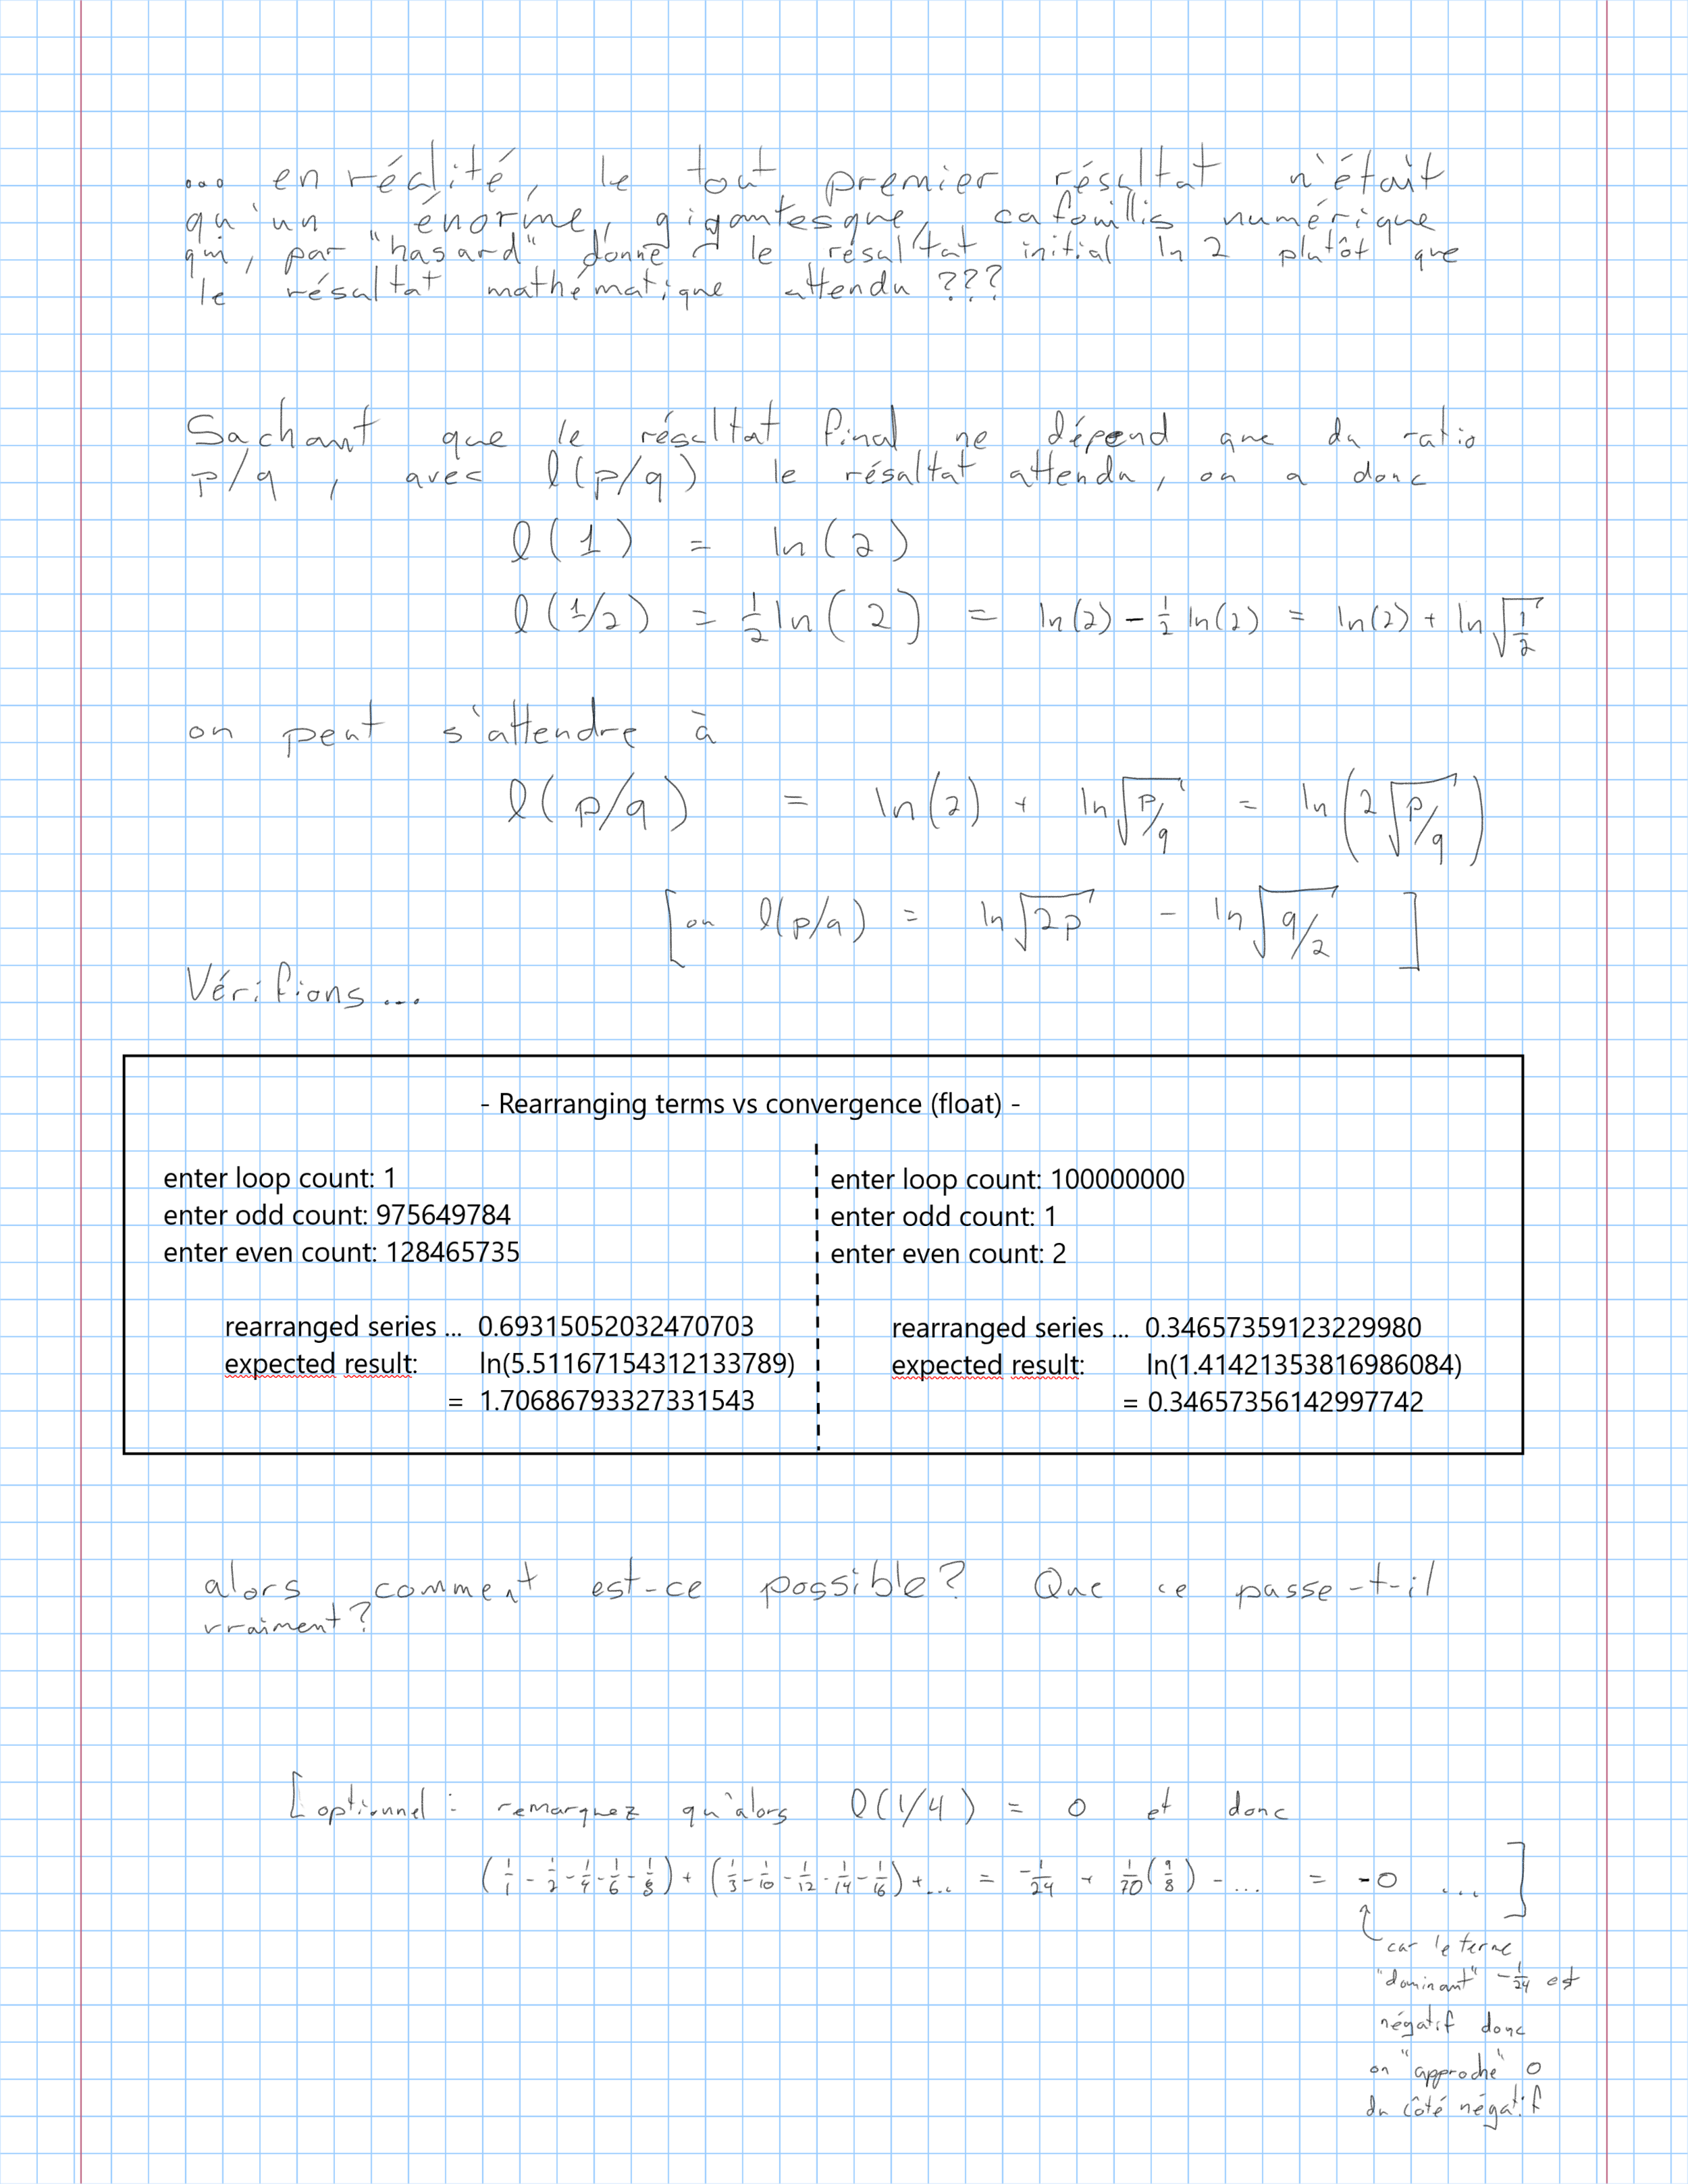 ... en réalité, le tout premier résultat n'était
qu'un énorme, gigantesque, cafouillis numérique
qui, par "hasard" donne le résultat initial ln 2 plutôt que
le résultat mathématique attendu ???
Sachant que le résultat final ne dépend que du ratio
p/q, avec l(p/q) le résultat attendu, on a donc
l(1) = ln(2)
l(1/2) = 1/2 ln(2) = ln(2) - 1/2 ln(2) = ln(2) + ln √(1/2)
on peut s'attendre à
l(p/q) = ln(2) + ln √(p/q) = ln(2√(p/q))
[ou l(p/q) = ln √(2p) - ln √(q/2) ]
Vérifions ...
- Rearranging terms vs convergence (float) -
enter loop count: 1
enter odd count: 975649784
enter even count: 128465735
rearranged series ... 0.69315052032470703
expected result: ln(5.51167154312133789)
= 1.70686793327331543
enter loop count: 100000000
enter odd count: 1
enter even count: 2
rearranged series ... 0.34657359123229980
expected result: ln(1.41421353816986084)
= 0.34657356142997742
alors comment est-ce possible? Que ce passe-t-il
vraiment?
[optionnel: remarquez qu'alors l(1/4) = 0 et donc
(1/1 - 1/2 - 1/4 - 1/6 - 1/8) + (1/3 - 1/10 - 1/12 - 1/14 - 1/16) + ... = -1/24 + 1/70(9/8) - ... = -0 ... ]
car le terme
"dominant" -1/24 est
négatif donc
on "approche" 0
du côté négatif